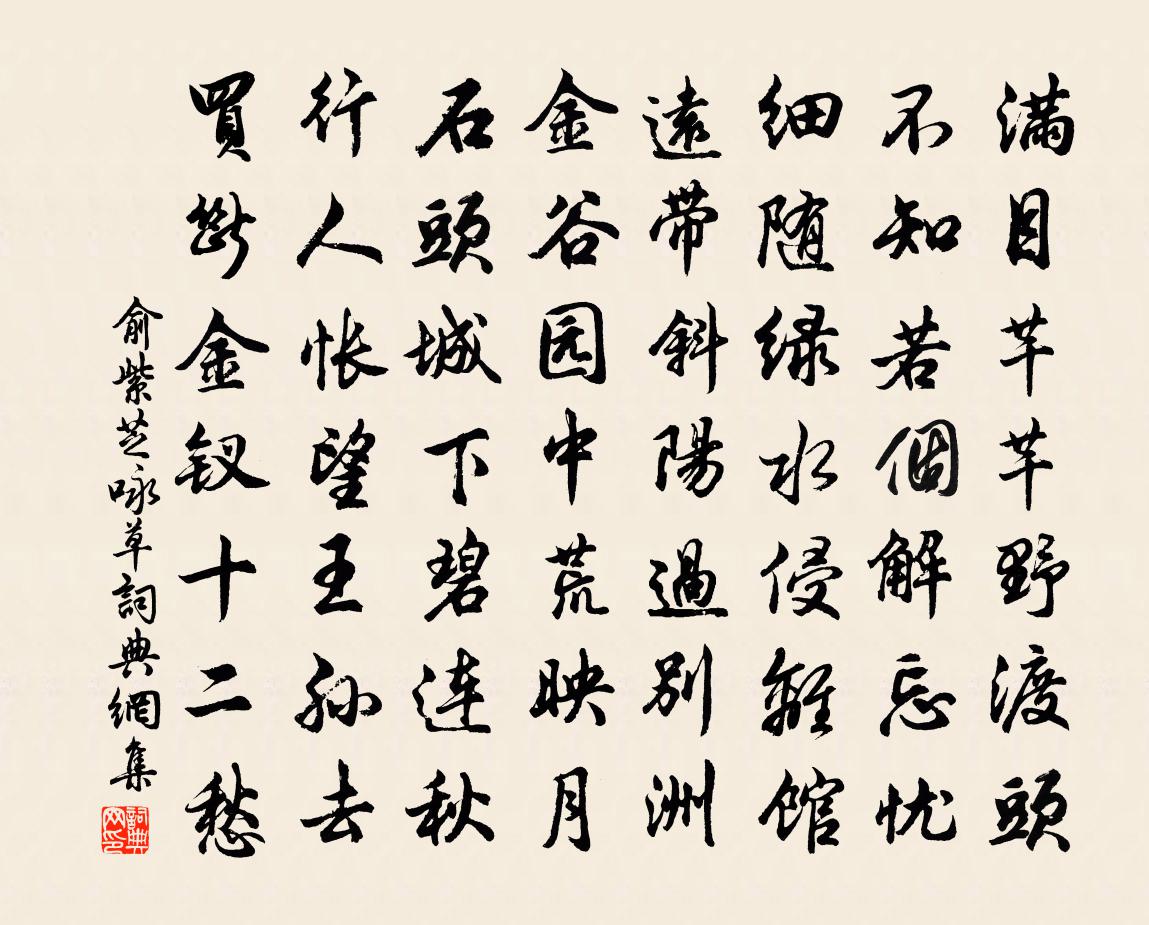 滿目芊芊野渡頭
不知若個解忘忧
细随绿水侵離馆
遠帶斜陽過別洲
金谷园中荒映月
石頭城下碧连秋
行人怅望王孙去
買斷金钗十二愁
俞紫芝咏草詞典網集
詞典